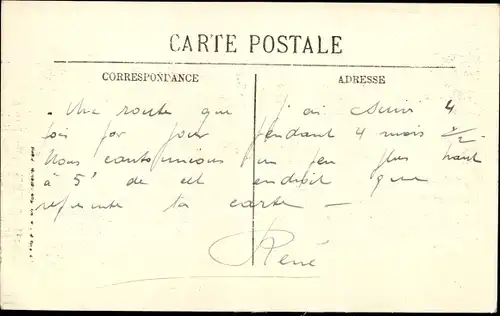 CARTE POSTALE
CORRESPONDANCE
ADRESSE
- Une route que j'ai suivi 4
fois par jour pendant 4 mois 1/2.
Nous cantonnions un peu plus haut
à 5' de cet endroit que
représente ta carte —
René